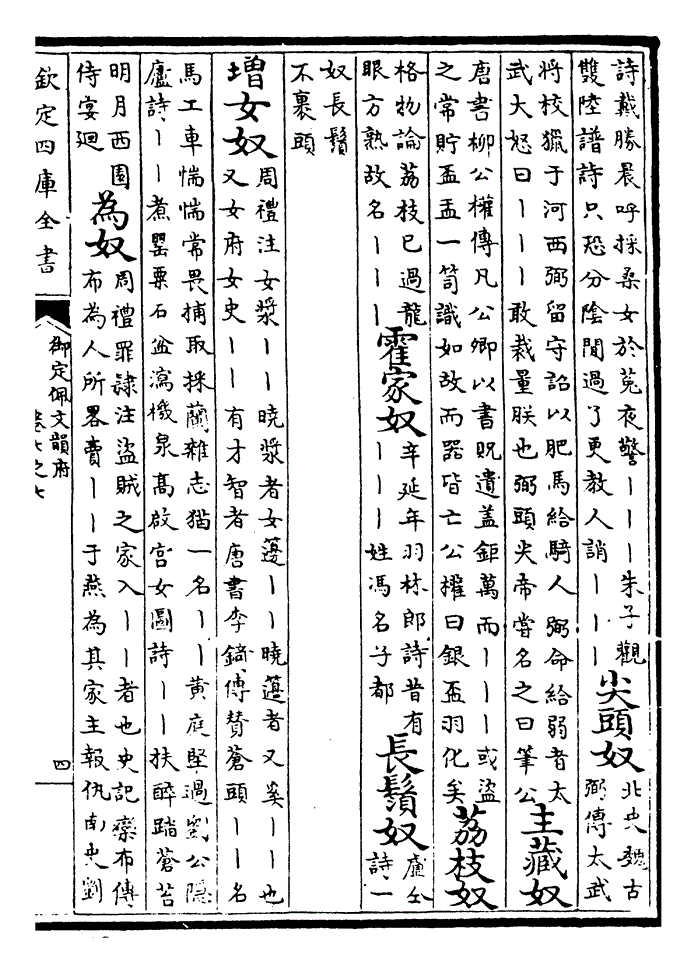 詩戴勝晨呼採桑女於菟夜警丨丨丨朱子觀
雙陸譜詩只恐分陰閒過了更教人誚丨丨丨
尖頭奴
北史魏古
弼傳太武
將校獵于河西弼留守詔以肥馬給騎人弼命給弱者太
武大怒曰丨丨丨敢裁量朕也弼頭尖帝嘗名之曰筆公
主藏奴
唐書柳公權傳凡公卿以書貺遺蓋鉅萬而丨丨丨或盜
之常貯盃盂一笥識如故而器皆亡公權曰銀盃羽化矣
荔枝奴
格物論荔枝已過龍
眼方熟故名丨丨丨
霍家奴
辛延年羽林郎詩昔有
丨丨丨姓馮名子都
長鬚奴
盧仝
詩一
奴長鬚
不裹頭
增女奴
周禮注女漿丨丨曉漿者女籩丨丨曉籩者又奚丨丨也
又女府女史丨丨有才智者唐書李錡傳贊蒼頭丨丨名
馬工車惴惴常畏捕取採蘭雜志猫一名丨丨黄庭堅過劉公隱
廬詩丨丨煮罌粟石盆瀉機泉高啟宫女圖詩丨丨扶醉踏蒼苔
明月西園
侍宴廻
為奴
周禮罪隸注盜賊之家入丨丨者也史記欒布傳
布為人所畧賣丨丨于燕為其家主報仇南史劉
欽定四庫全書
御定佩文韻府
卷七之七
四